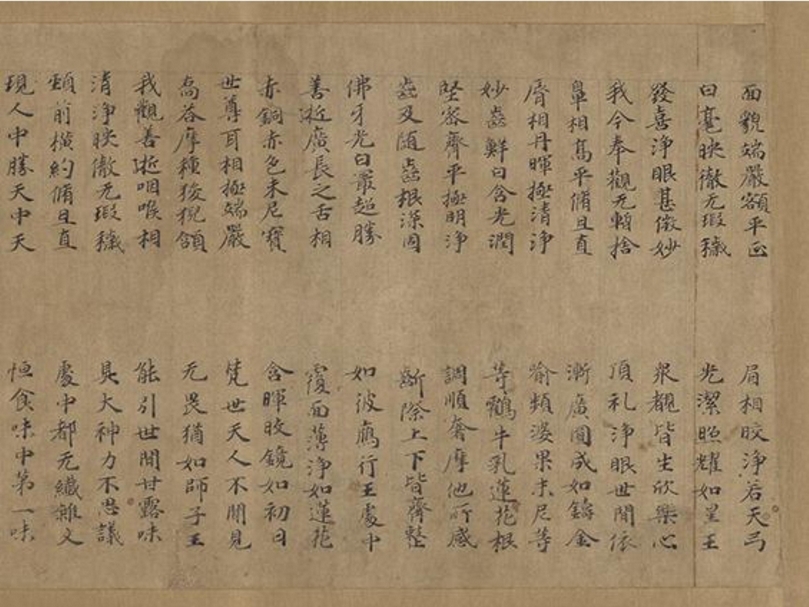 面貌端嚴額平正 眉相皎淨若天弓
白毫映徹无瑕穢 光潔照耀如星王
發喜淨眼甚微妙 衆覩皆生欣樂心
我今奉觀无暫捨 頂礼淨眼世間依
鼻相高平脩且直 漸廣圓成如鑄金
脣相丹暉極清淨 喻頻婆果末尼等
妙齒鮮白含光潤 等鸖牛乳蓮花根
堅密齊平極明淨 調順奢摩他所感
齒及随齒根深固 斷際上下皆齊整
佛牙光白最超勝 如彼鴈行王處中
善逝廣長之舌相 覆面薄淨如蓮花
赤銅赤色末尼寶 含暉鏡如初日
世尊耳相極端嚴 梵世天人不聞見
喬荅摩種狻猊頷 无畏猶如師子王
我觀善逝咽喉相 能引世間甘露味
清淨映徹无瑕穢 具大神力不思議
頸前橫約脩且直 處中都无纖雜文
現人中勝天中天 恒食味中第一味